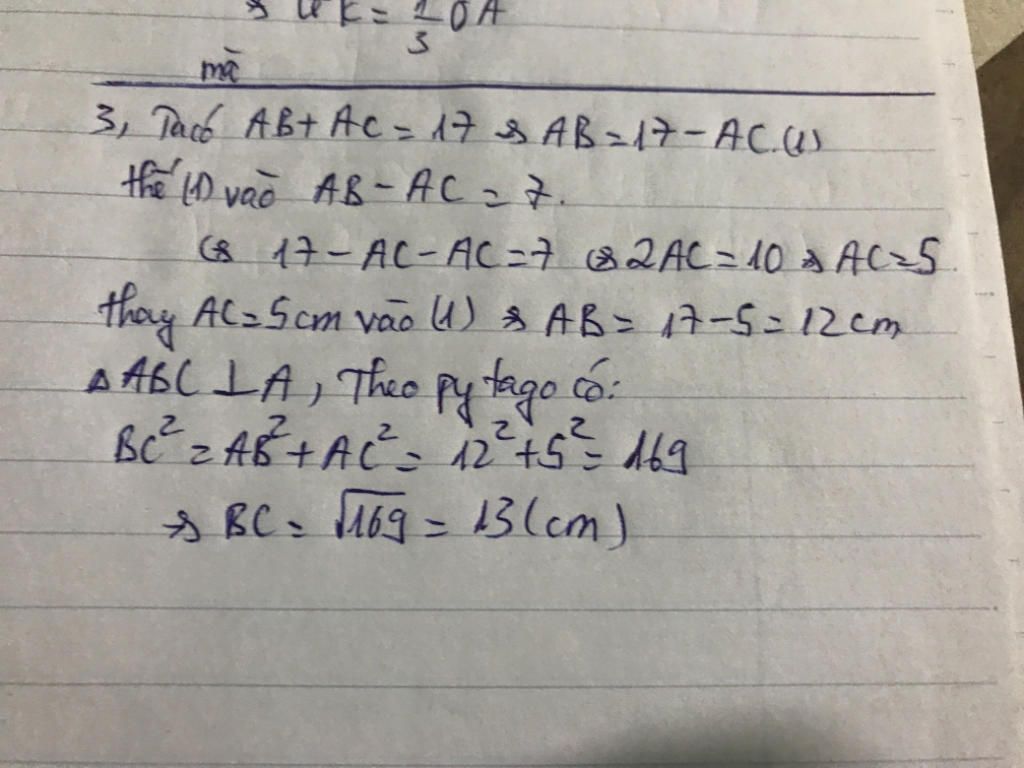 K = 1/3 OA
mà
3, Ta có AB + AC = 17 => AB = 17 - AC. (1)
thế (1) vào AB - AC = 7.
<=> 17 - AC - AC = 7 <=> 2AC = 10 => AC = 5.
thay AC = 5cm vào (1) => AB = 17 - 5 = 12cm
△ABC ⊥ A, Theo pytago có:
BC² = AB² + AC² = 12² + 5² = 169
=> BC = √169 = 13 (cm)